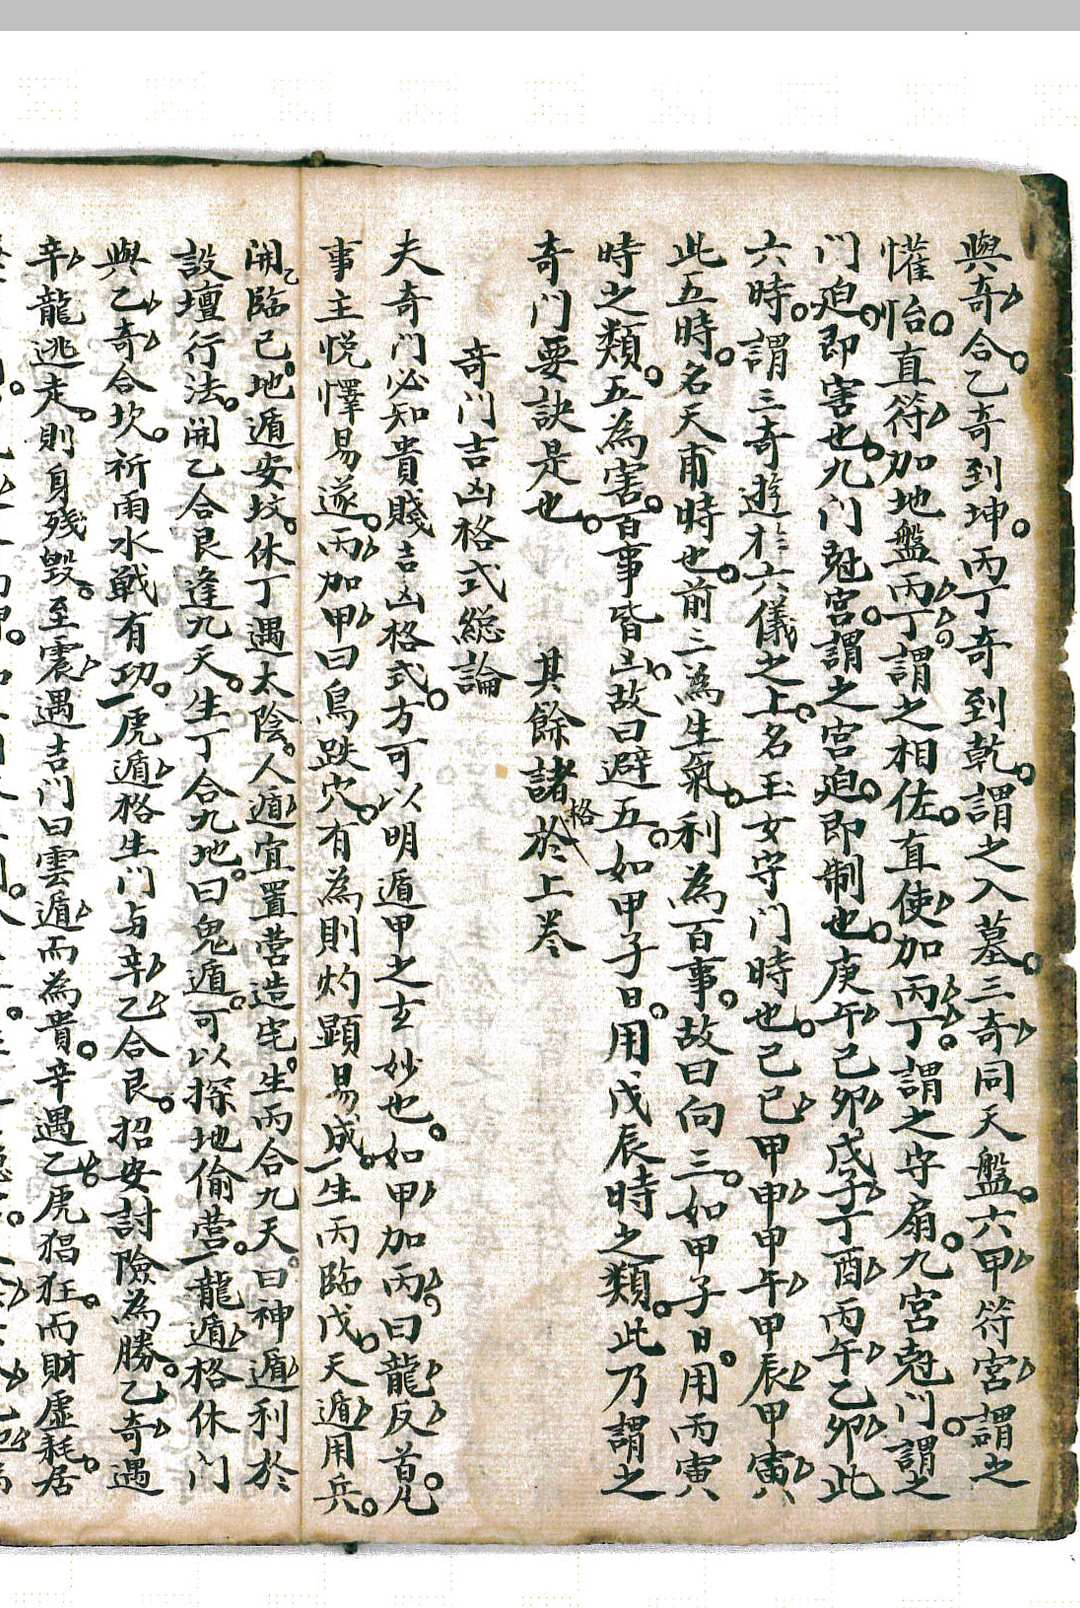 與奇合。乙奇到坤。丙丁奇到乾。謂之入墓。三奇同天盤。六甲符宮謂之
懽怡。直符加地盤丙丁。謂之相佐。直使加丙丁。謂之守扇。九宮尅門。謂之
門廹。即害也。九門尅宮。謂之宮廹。即制也。庚午己卯戊子丁酉丙午乙卯此
六時。謂三奇遊於六儀之上。名玉女守門時也。己巳甲申甲午甲辰甲寅
此五時。名天甫時也。前三為生氣。利為百事。故曰向三。如甲子日。用丙寅
時之類。五為害。百事皆亡。故曰避五。如甲子日。用戊辰時之類。此乃謂之
奇門要訣是也。 其餘諸格於上卷
奇門吉凶格式総論
夫奇門必知貴賤吉凶格式。方可以明遁甲之玄妙也。如甲加丙。曰龍反首。凡
事主悅懌易遂。丙加甲曰鳥跌穴。有為則灼顯易成。生丙臨戊。天遁用兵。
開乙臨己。地遁安坟。休丁遇太陰。人遁宜置營造宅。生丙合九天。曰神遁利於
設壇行法。開乙合艮逢九天。生丁合九地。曰鬼遁。可以探地偷營。龍遁格休門
與乙奇合坎。祈雨水戰有功。虎遁格生门与辛乙合艮。招安討險為勝。乙奇遇
辛龍逃走。則身殘毀。至震遇吉门曰雲遁而為貴。辛遇乙虎猖狂。而財虛耗。居